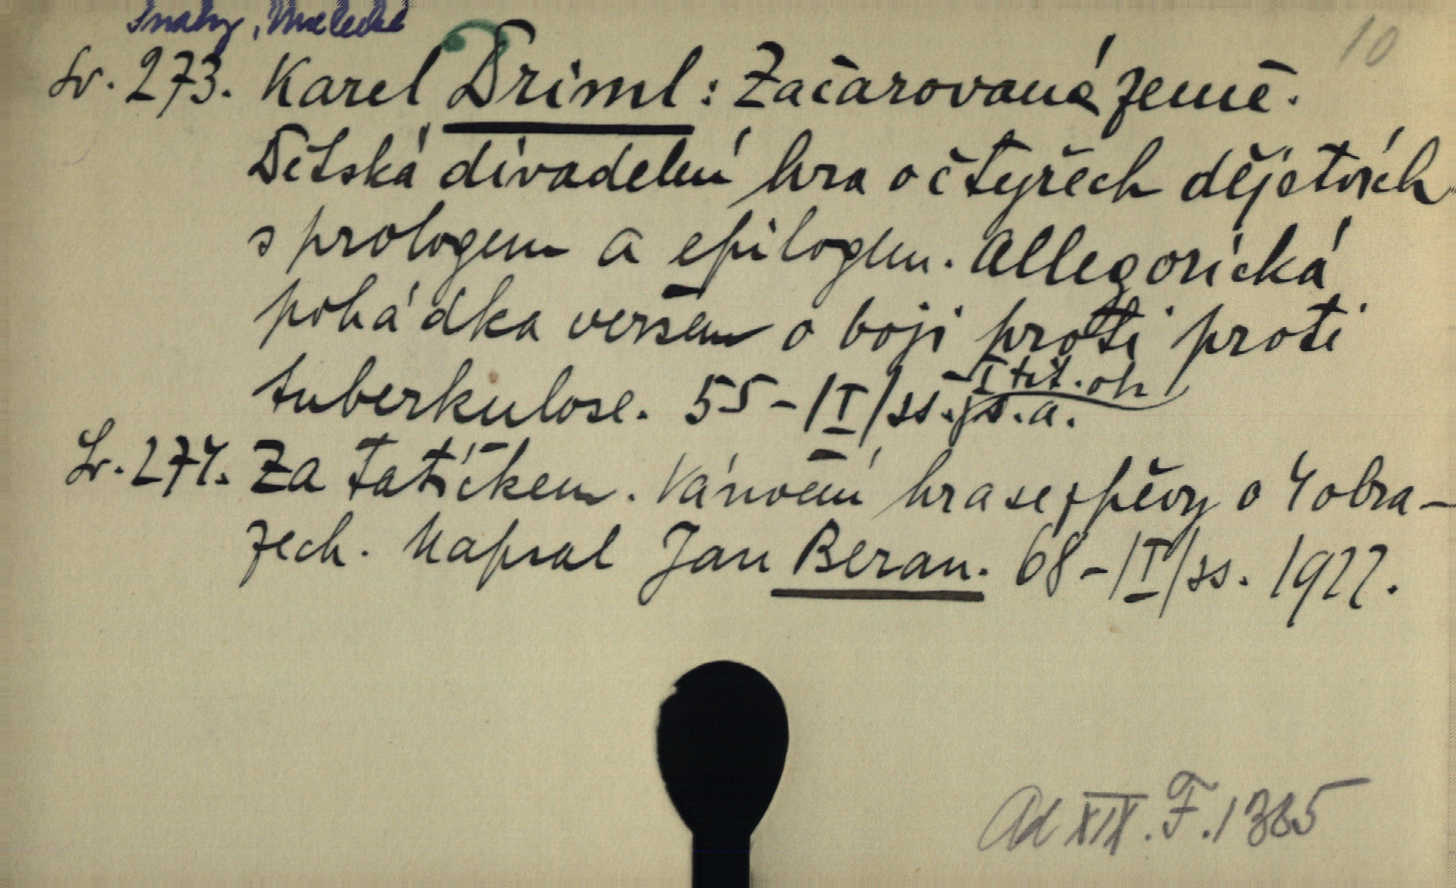 Snahy, Umělecké
10
Sv. 273. Karel Driml: Začarovaná země.
Dětská divadelní hra o čtyřech dějstvích
s prologem a epilogem. Allegorická
pohádka veršem o boji proti proti
tuberkulose. 55-|I|ss. s.a.
I tit. ob
Sv. 274. Za tatíčkem. Vánoční hra se zpěvy o 4 obra-
zech. Napsal Jan Beran. 68-|I|ss. 1922.
Ad XIX.F.1365